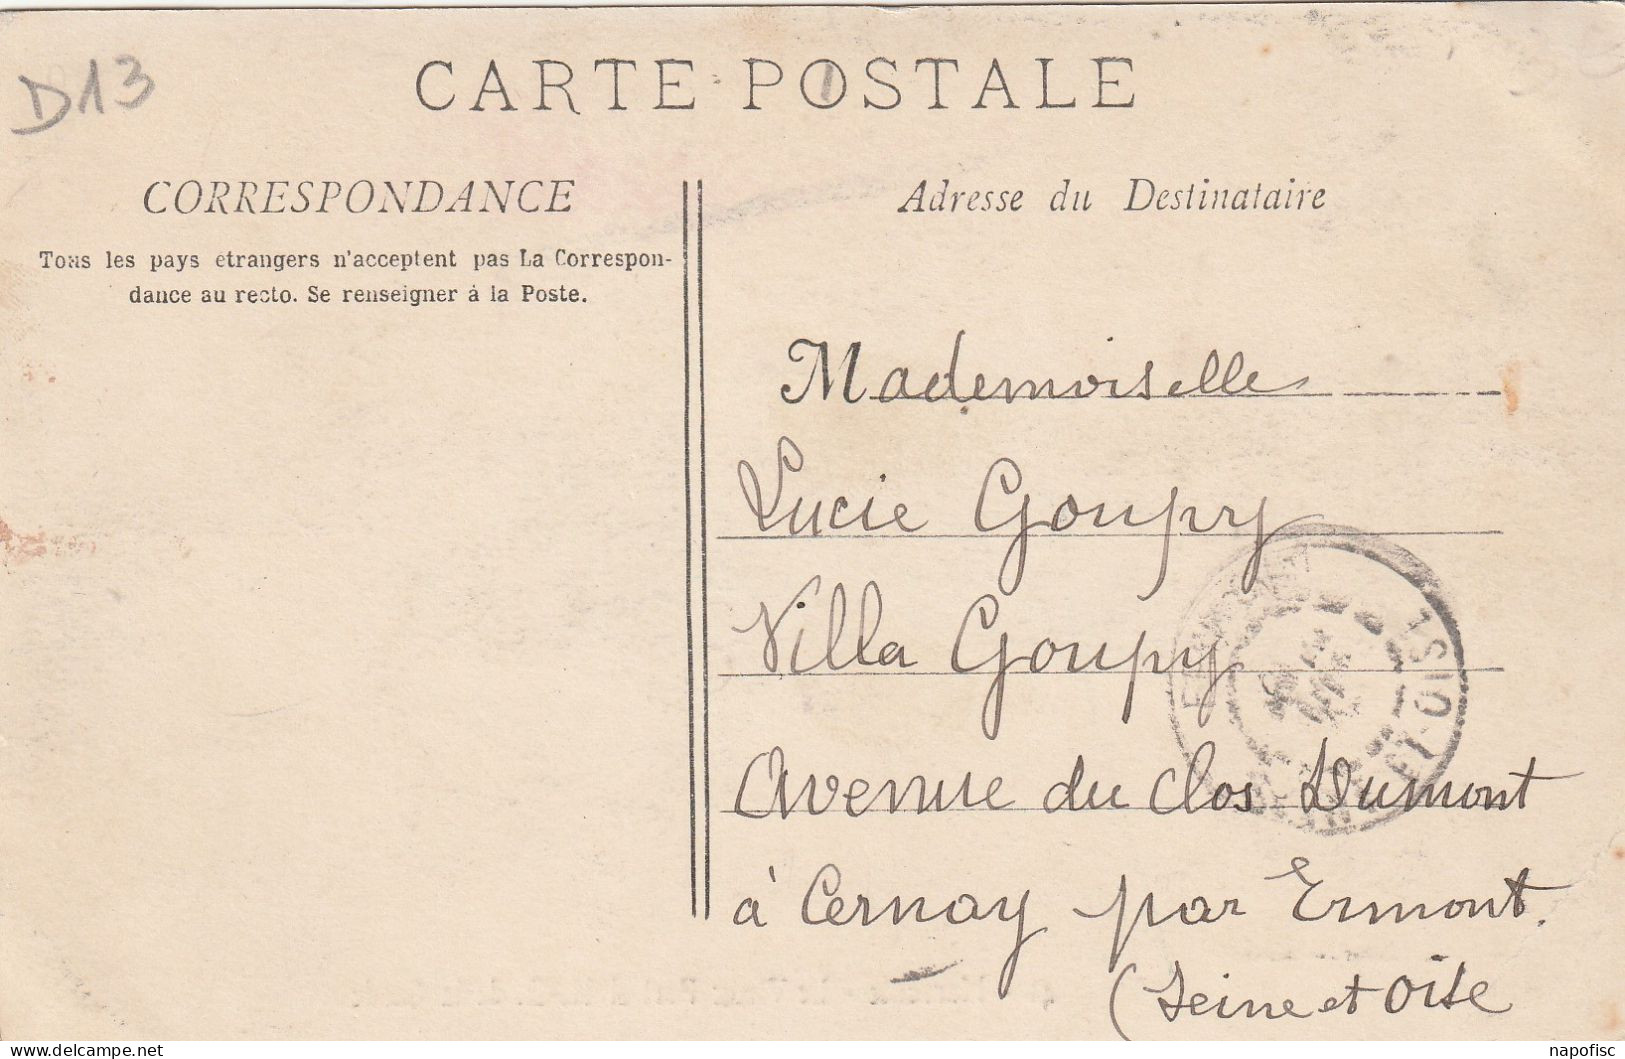 D13
CARTE POSTALE
CORRESPONDANCE
Tous les pays etrangers n'acceptent pas La Correspon-
dance au recto. Se renseigner à la Poste.
Adresse du Destinataire
Mademoiselle
Lucie Goupy
Villa Goupy
Avenue du Clos Dumont
à Cernay par Ermont.
(Seine et Oise
ET-OISE
delcampe.net
napofisc